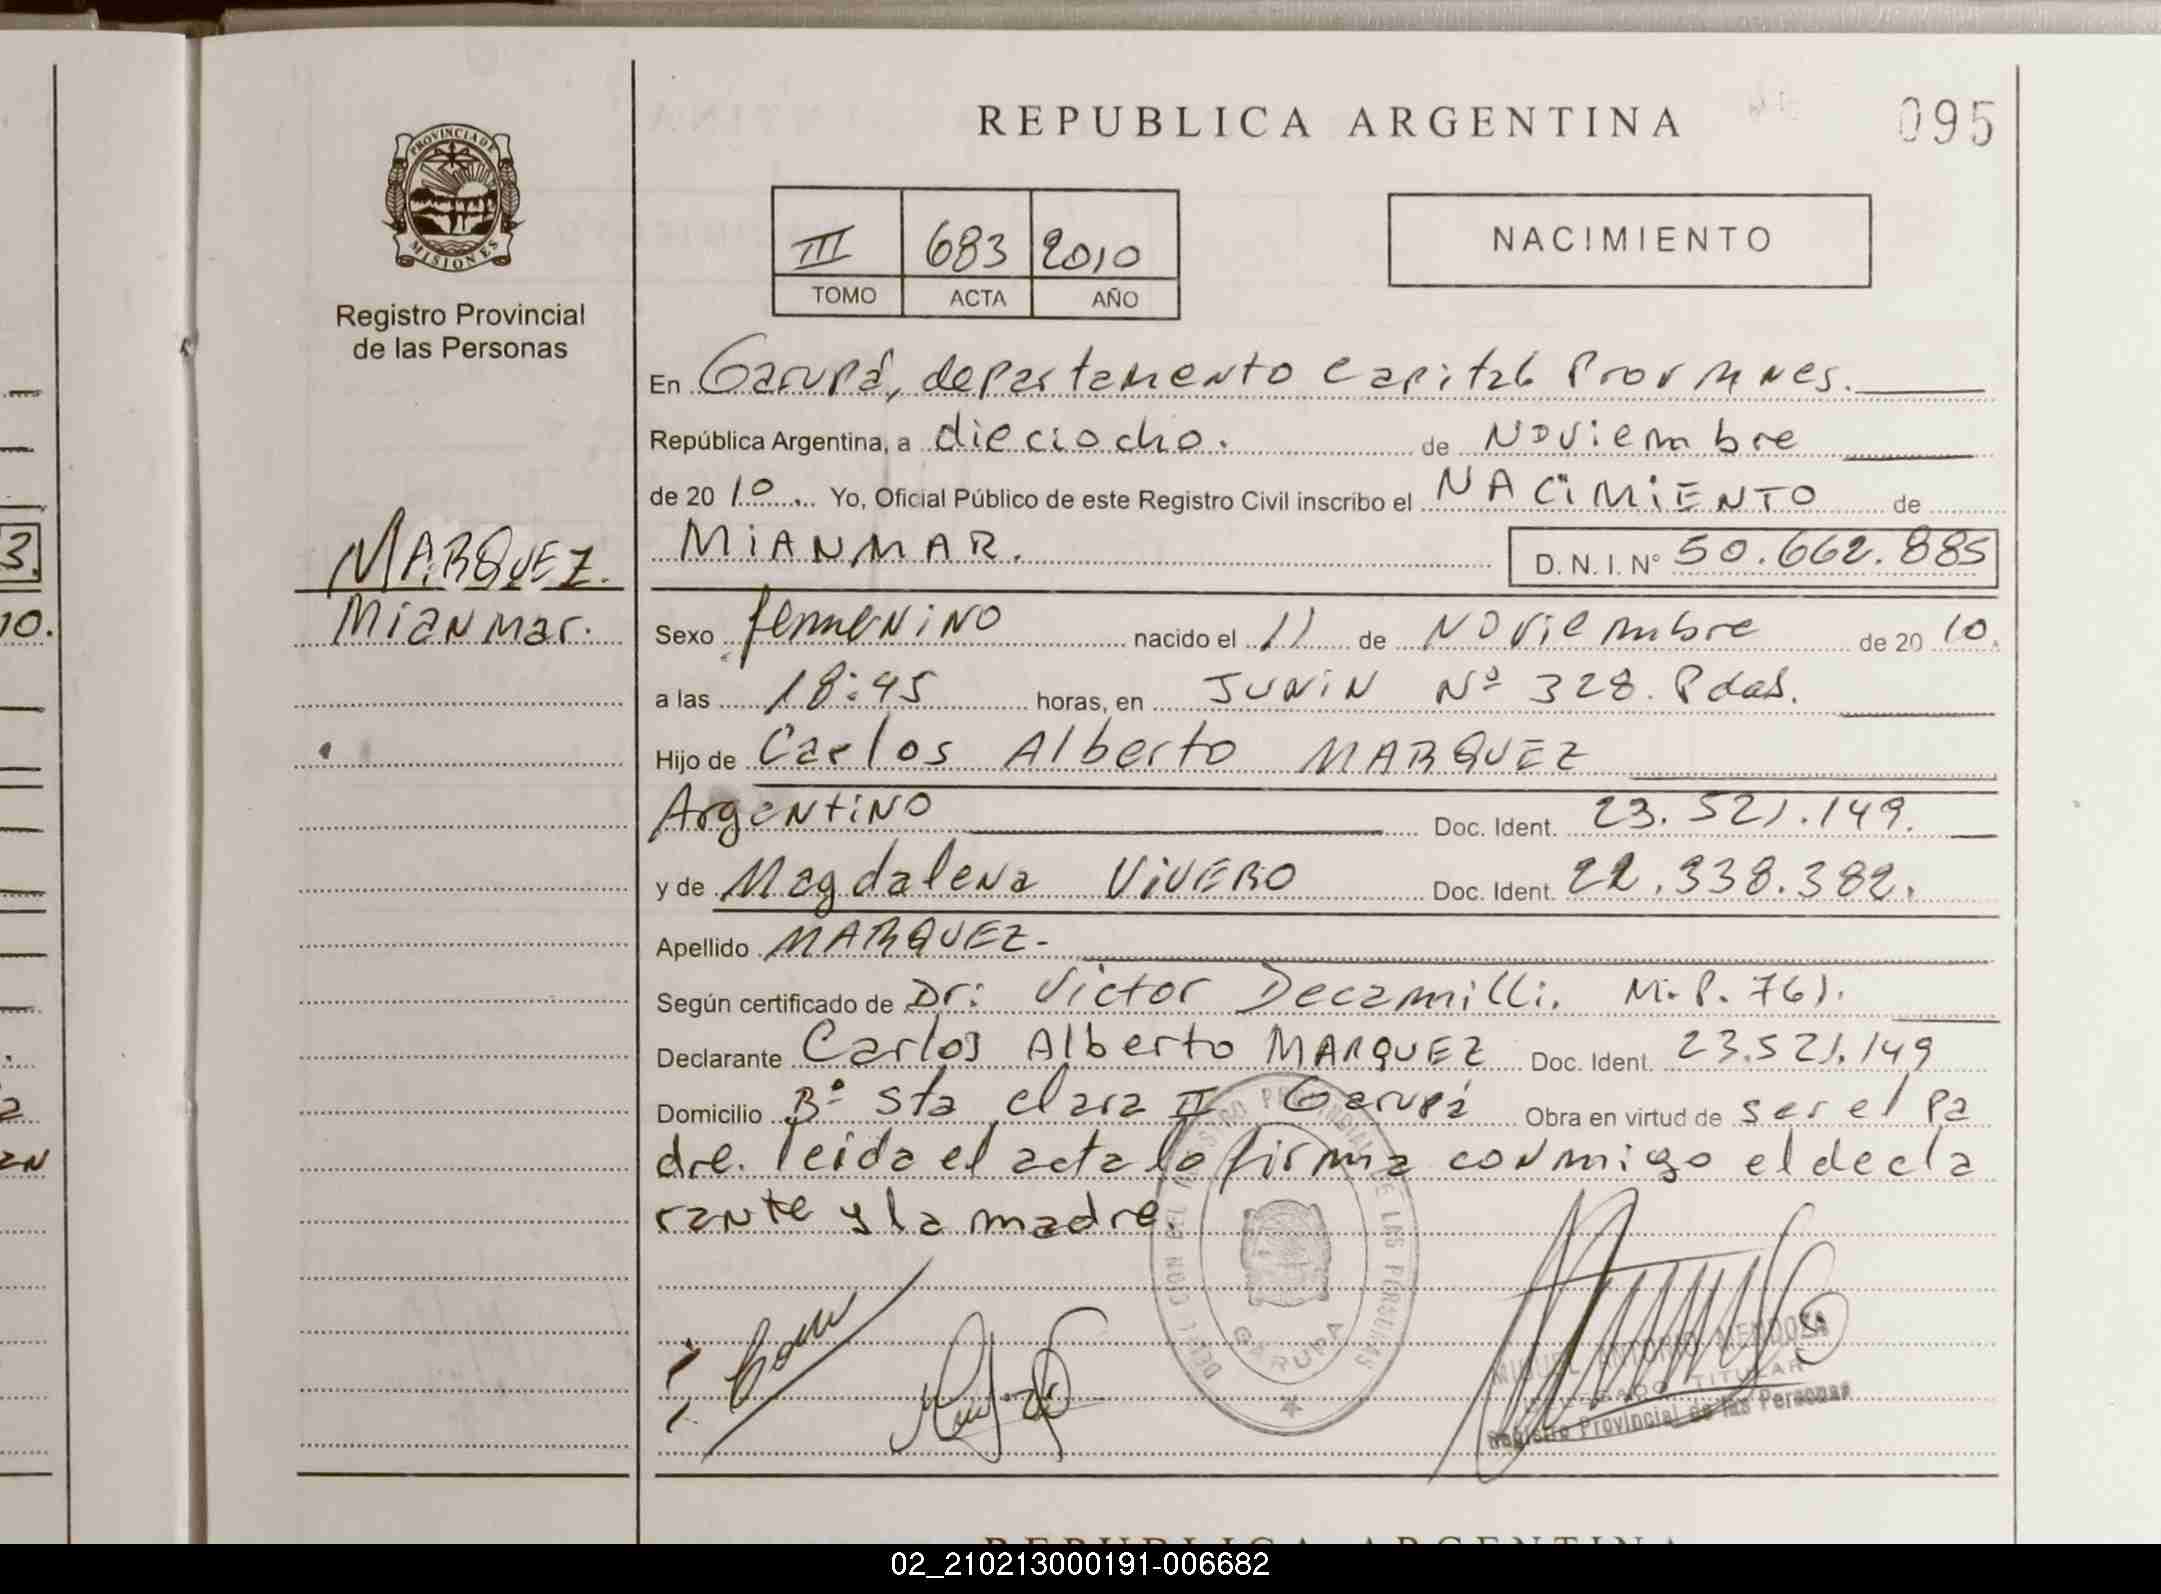 REPUBLICA ARGENTINA
095
PROVINCIA DE
MISIONES
Registro Provincial
de las Personas
III 683 2010
TOMO ACTA AÑO
NACIMIENTO
En Garupá, departamento Capital Prov Mnes.
República Argentina, a dieciocho. de Noviembre
de 2010 Yo, Oficial Público de este Registro Civil inscribo el NACIMIENTO de
MARQUEZ.
Mianmar.
MIANMAR. D. N. I. Nº 50.662.885
Sexo femenino nacido el 11 de Noviembre de 2010.
a las 18:45 horas, en JUNIN Nº 328. Pdas.
Hijo de Carlos Alberto MARQUEZ
Argentino Doc. Ident. 23.521.149.
y de Magdalena VIVERO Doc. Ident. 22.338.382.
Apellido MARQUEZ.-
Según certificado de Dr: Victor Decamilli. M.P. 761.
Declarante Carlos Alberto MARQUEZ Doc. Ident. 23.521.149
Domicilio Bº Sta Clara II Garupá Obra en virtud de ser el pa
dre. leida el acta lo firma conmigo el decla
rante y la madre.
DELEGACION DEL REGISTRO PROVINCIAL DE LAS PERSONAS
GARUPA
MIGUEL ANTONIO MENDOZA
DELEGADO TITULAR
Registro Provincial de las Personas
3.
10.
REPUBLICA ARGENTINA
02_210213000191-006682